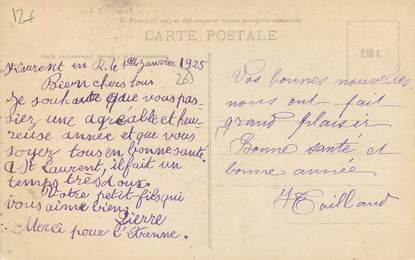 126
CARTE POSTALE
0.10 c.
St Laurent en R. le 1er janvier 1925
26
Bien chers tous
Je souhaite que vous pas-
siez une agréable et heu-
reuse année et que vous
soyez tous en bonne santé.
A St Laurent, il fait un
temps très doux.
Votre petit-fils qui
vous aime bien:
Pierre
Merci pour l'étrenne.
Vos bonnes nouvelles
nous ont fait
grand plaisir
Bonne santé et
bonne année